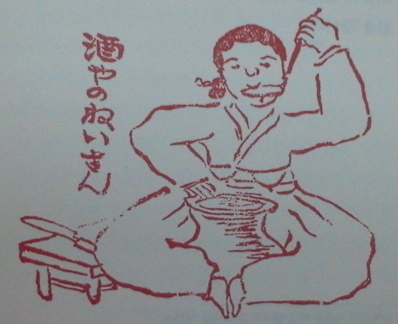 酒やのねいさん